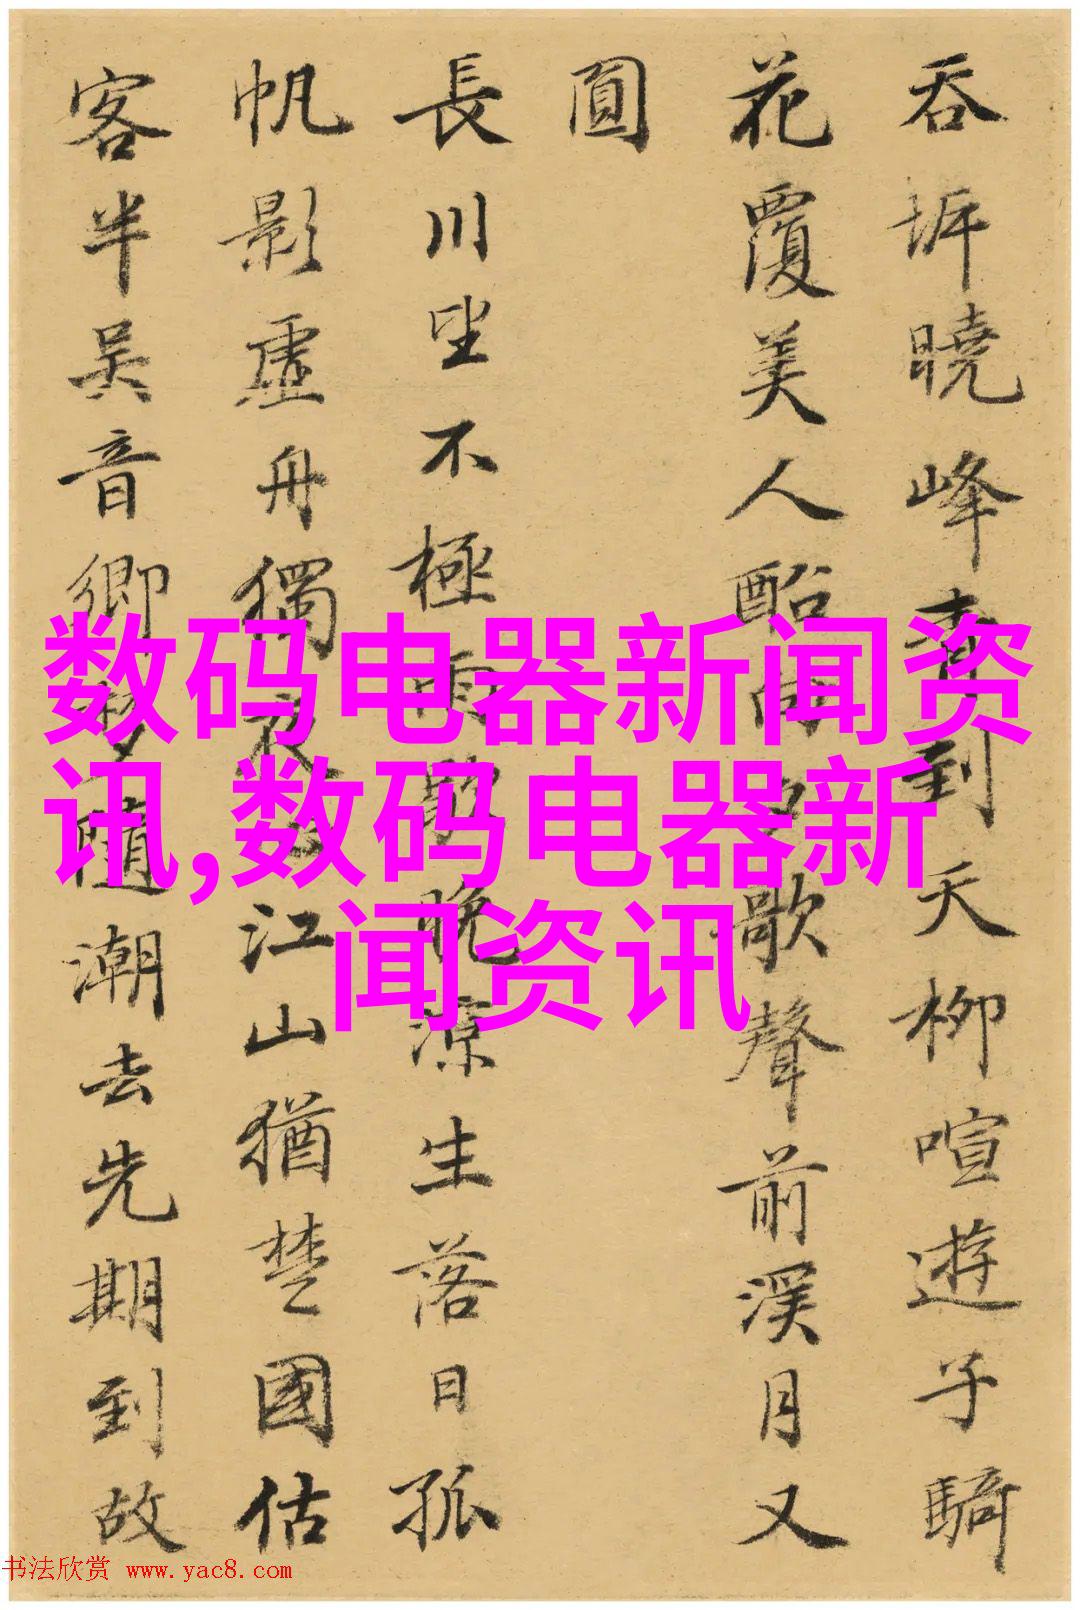 吞坼曉峰青到天柳喧遊子騎
花覆美人酩向夕歌聲前溪月又
圓
長川坐不極雨歇晚涼生落日孤
帆影虛舟獨夜情江山猶楚國估
客半吳音卿夢隨潮去先期到故
数码电器新闻资
讯,数码电器新
闻资讯
书法欣赏 www.yac8.com